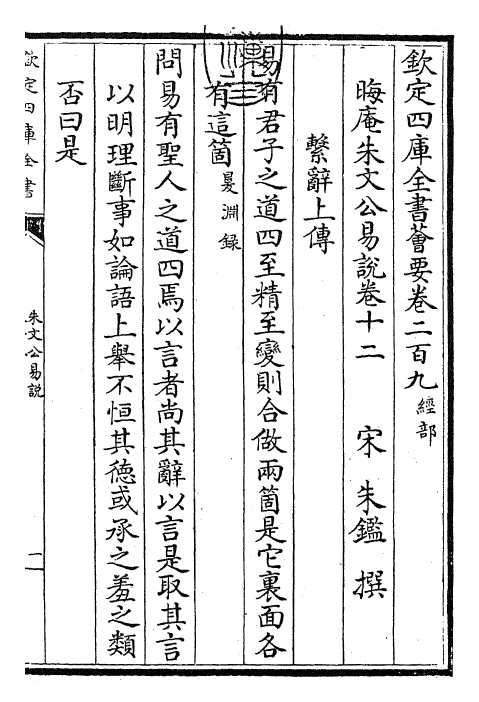 欽定四庫全書薈要卷二百九 經部
晦庵朱文公易說卷十二 宋 朱鑑 撰
繫辭上傳
易有君子之道四至精至變則合做兩箇是它裏面各
有這箇 㬊淵録
問易有聖人之道四焉以言者尚其辭以言是取其言
以明理斷事如論語上舉不恒其德或承之羞之類
否曰是
欽定四庫全書
朱文公易說
一